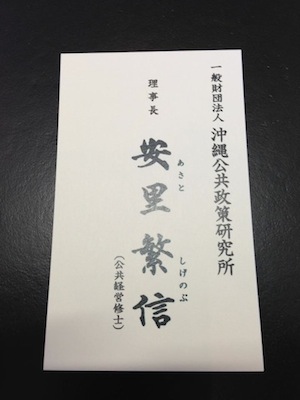 一般財団法人 沖縄公共政策研究所
理事長
安里繁信
あさと しげのぶ
（公共経営修士）